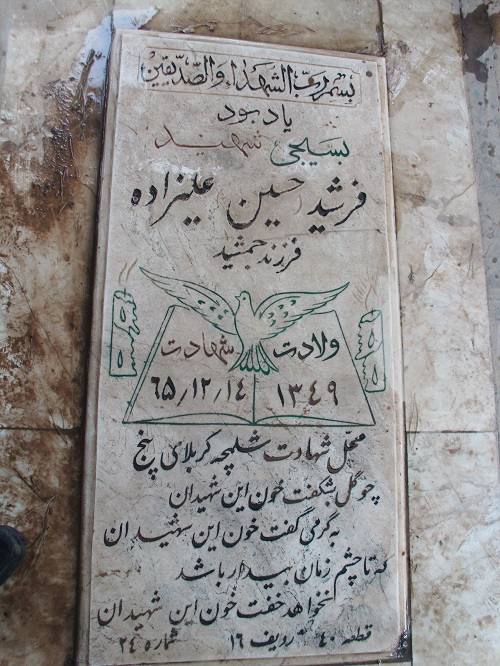 بسم رب الشهداء والصدیقین
یادبود
بسیجی شهید
فرشید حسین علیزاده
فرزند جمشید
ولادت شهادت
۱۳۴۹ ۶۵٫۱۲٫۱۴
محل شهادت شلمچه کربلای پنج
چو گل بشکفت خون این شهیدان
به گرمی گفت خون این شهیدان
که تا چشم زمان بیدار باشد
نخواهد خفت خون این شهیدان
قطعه ۴۰ ردیف ۱۶ شماره ۲۴